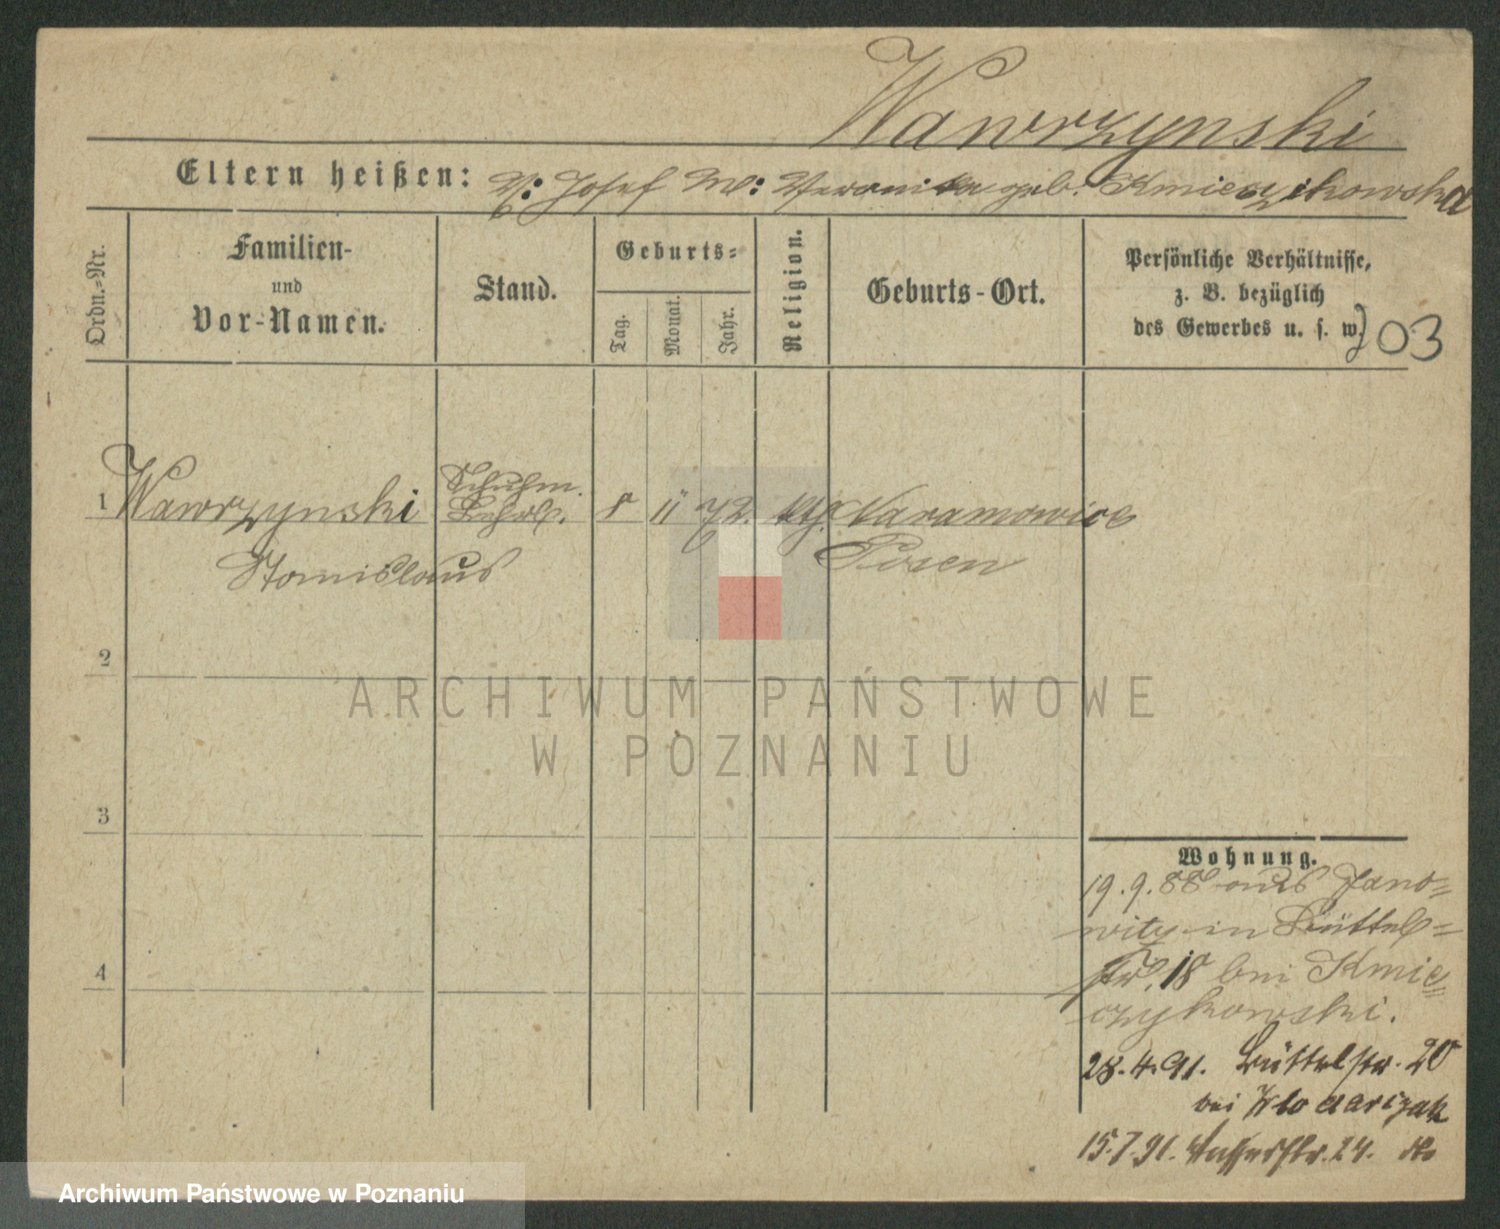 Wawrzynski
Eltern heißen: V: Josef M: Veronika geb. Kmieczikowska
Ordn.-Nr.
Familien-
und
Vor-Namen.
Stand.
Geburts-
Tag.
Monat.
Jahr.
Religion.
Geburts-Ort.
Persönliche Verhältnisse,
z. B. bezüglich
des Gewerbes u. s. w.
03
1 Wawrzynski
Stanislaus
Schuhm.
Lehrl.
8 11 72. Posen
2
ARCHIWUM PAŃSTWOWE
W POZNANIU
3
4
Wohnung.
19.9.88 aus Jano=
witz in Büttel=
str. 18 bei Kmie=
czykowski.
28.4.91. Büttelstr. 20
bei Wlodarizak
15.7.91. 24. do
Archiwum Państwowe w Poznaniu